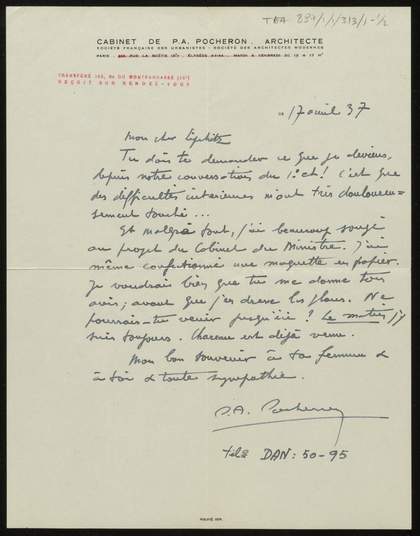 TGA 897/1/1/313/1-1/2
CABINET DE P.A. POCHERON, ARCHITECTE
SOCIÉTÉ FRANÇAISE DES URBANISTES - SOCIÉTÉ DES ARCHITECTES MODERNES
PARIS RUE LA BOÉTIE (8e)
TRANSFÉRÉ 153, Bd DU MONTPARNASSE (14e)
REÇOIT SUR RENDEZ-VOUS
LE 17 avril 37
Mon cher Lipchitz
Tu dois te demander ce que je deviens,
depuis notre conversation du 1. oct! C'est que
des difficultés intérieures m'ont très douloureu-
sement touché...
Et malgré tout, j'ai beaucoup songé
au projet du Cabinet du Ministre. J'ai
même confectionné une maquette en papier.
Je voudrais bien que tu me donne ton
avis; avant que j'en dresse les plans. Ne
pourrais-tu venir jusqu'ici? Le matin j'y
suis toujours. Chareau est déjà venu.
Mon bon souvenir à ta femme &
à toi & toute sympathie.
P.A. Pocheron
télé DAN: 50-95